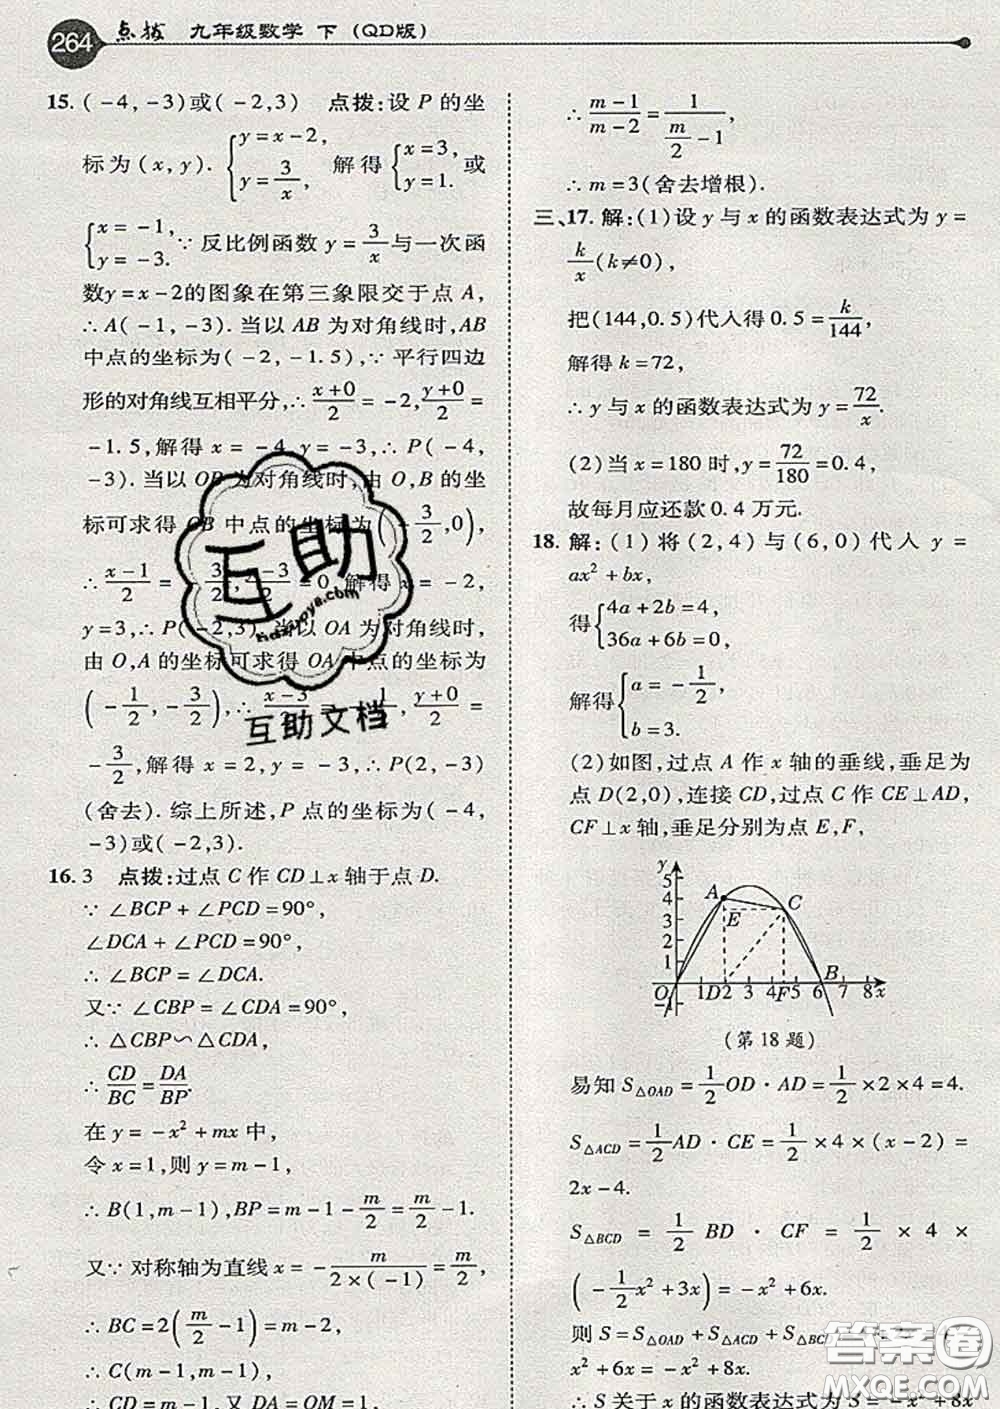 264 点拨 九年级数学 下（QD版）
15.(-4,-3)或(-2,3) 点拨:设 P 的坐
标为(x,y). { y=x-2, y=3/x, 解得 { x=3, y=1. 或
{ x=-1, y=-3. ∵反比例函数 y=3/x 与一次函
数y=x-2的图象在第三象限交于点 A,
∴A(-1,-3).当以 AB 为对角线时,AB
中点的坐标为(-2,-1.5),∵平行四边
形的对角线互相平分,∴(x+0)/2=-2,(y+0)/2=
-1.5,解得 x=-4,y=-3,∴P(-4,
-3).当以 OB 为对角线时,由 O,B 的坐
标可求得 OB 中点的坐标为(-3/2,0),
∴(x-1)/2=-3/2,(y-3)/2=0,解得 x=-2,
y=3,∴P(-2,3).当以 OA 为对角线时,
由 O,A 的坐标可求得 OA 中点的坐标为
(-1/2,-3/2),∴(x-3)/2=-1/2,(y+0)/2=
-3/2,解得 x=2,y=-3,∴P(2,-3)
(舍去).综上所述,P 点的坐标为(-4,
-3)或(-2,3).
16.3 点拨:过点 C 作 CD⊥x 轴于点 D.
∵∠BCP+∠PCD=90°,
∠DCA+∠PCD=90°,
∴∠BCP=∠DCA.
又∵∠CBP=∠CDA=90°,
∴△CBP∽△CDA,
∴CD/BC=DA/BP.
在 y=-x²+mx 中,
令 x=1,则 y=m-1,
∴B(1,m-1),BP=m-1-m/2=m/2-1.
又∵对称轴为直线 x=-m/(2×(-1))=m/2,
∴BC=2(m/2-1)=m-2,
∴C(m-1,m-1),
∴CD=m-1.又 DA=OM=1,
∴(m-1)/(m-2)=1/(m/2-1),
∴m=3(舍去增根).
三、17.解:(1)设 y 与 x 的函数表达式为 y=
k/x(k≠0),
把(144,0.5)代入得 0.5=k/144,
解得 k=72,
∴y 与 x 的函数表达式为 y=72/x.
(2)当 x=180 时,y=72/180=0.4,
故每月应还款 0.4 万元.
18.解:(1)将(2,4)与(6,0)代入 y=
ax²+bx,
得{ 4a+2b=4, 36a+6b=0,
解得{ a=-1/2, b=3.
(2)如图,过点 A 作 x 轴的垂线,垂足为
点 D(2,0),连接 CD,过点 C 作 CE⊥AD,
CF⊥x 轴,垂足分别为点 E,F,
y
5
4 A C
3 E
2
1 B
O 1 D2 3 4 F5 6 7 8 x
-1
(第 18 题)
易知 S△OAD=1/2 OD·AD=1/2×2×4=4.
S△ACD=1/2 AD·CE=1/2×4×(x-2)=
2x-4.
S△BCD=1/2 BD·CF=1/2×4×
(-1/2x²+3x)=-x²+6x.
则 S=S△OAD+S△ACD+S△BCD
x²+6x=-x²+8x.
∴S 关于 x 的函数表达式为 S=-x²+8x
互助
hdzuoye.com
互助文档
答案圈
MXQE.COM